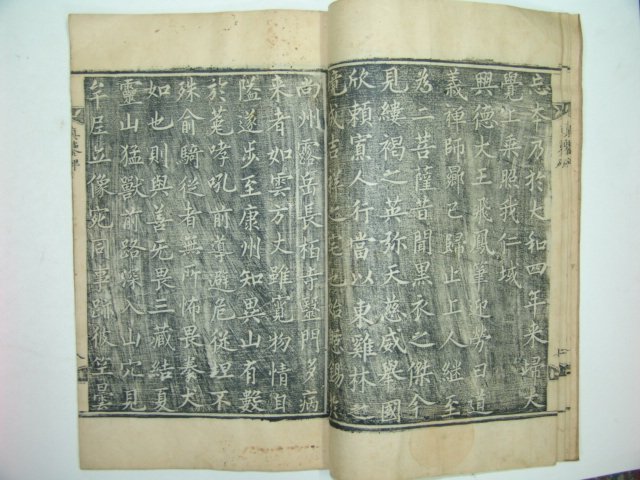 忘本乃於大和四年來歸大
覺上乘照我仁域
興德大王飛鳳筆迎勞曰道
義禪師曏已歸止上人繼至
為二菩薩昔聞黑衣之傑今
見縷褐之英弥天慈威舉國
欣賴寡人行當以東雞林之
境成吉祥之宅也始憩錫於
尚州露岳長栢寺毉門多病
来者如雲方丈雖寬物情自
隘遂步至康州知異山有數
於菟哮吼前導避危從坦不
殊俞騎從者無所怖畏豢犬
如也則與善无畏三藏結夏
靈山猛獸前路深入山穴見
牟尼立像宛同事跡彼竺曇